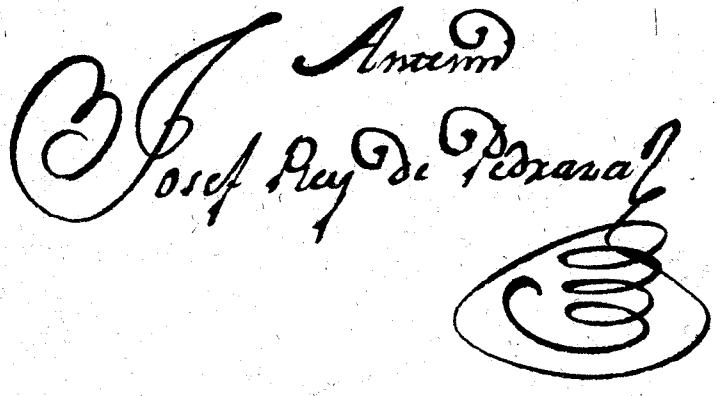 Antemi
Josef Rey de Pedraza